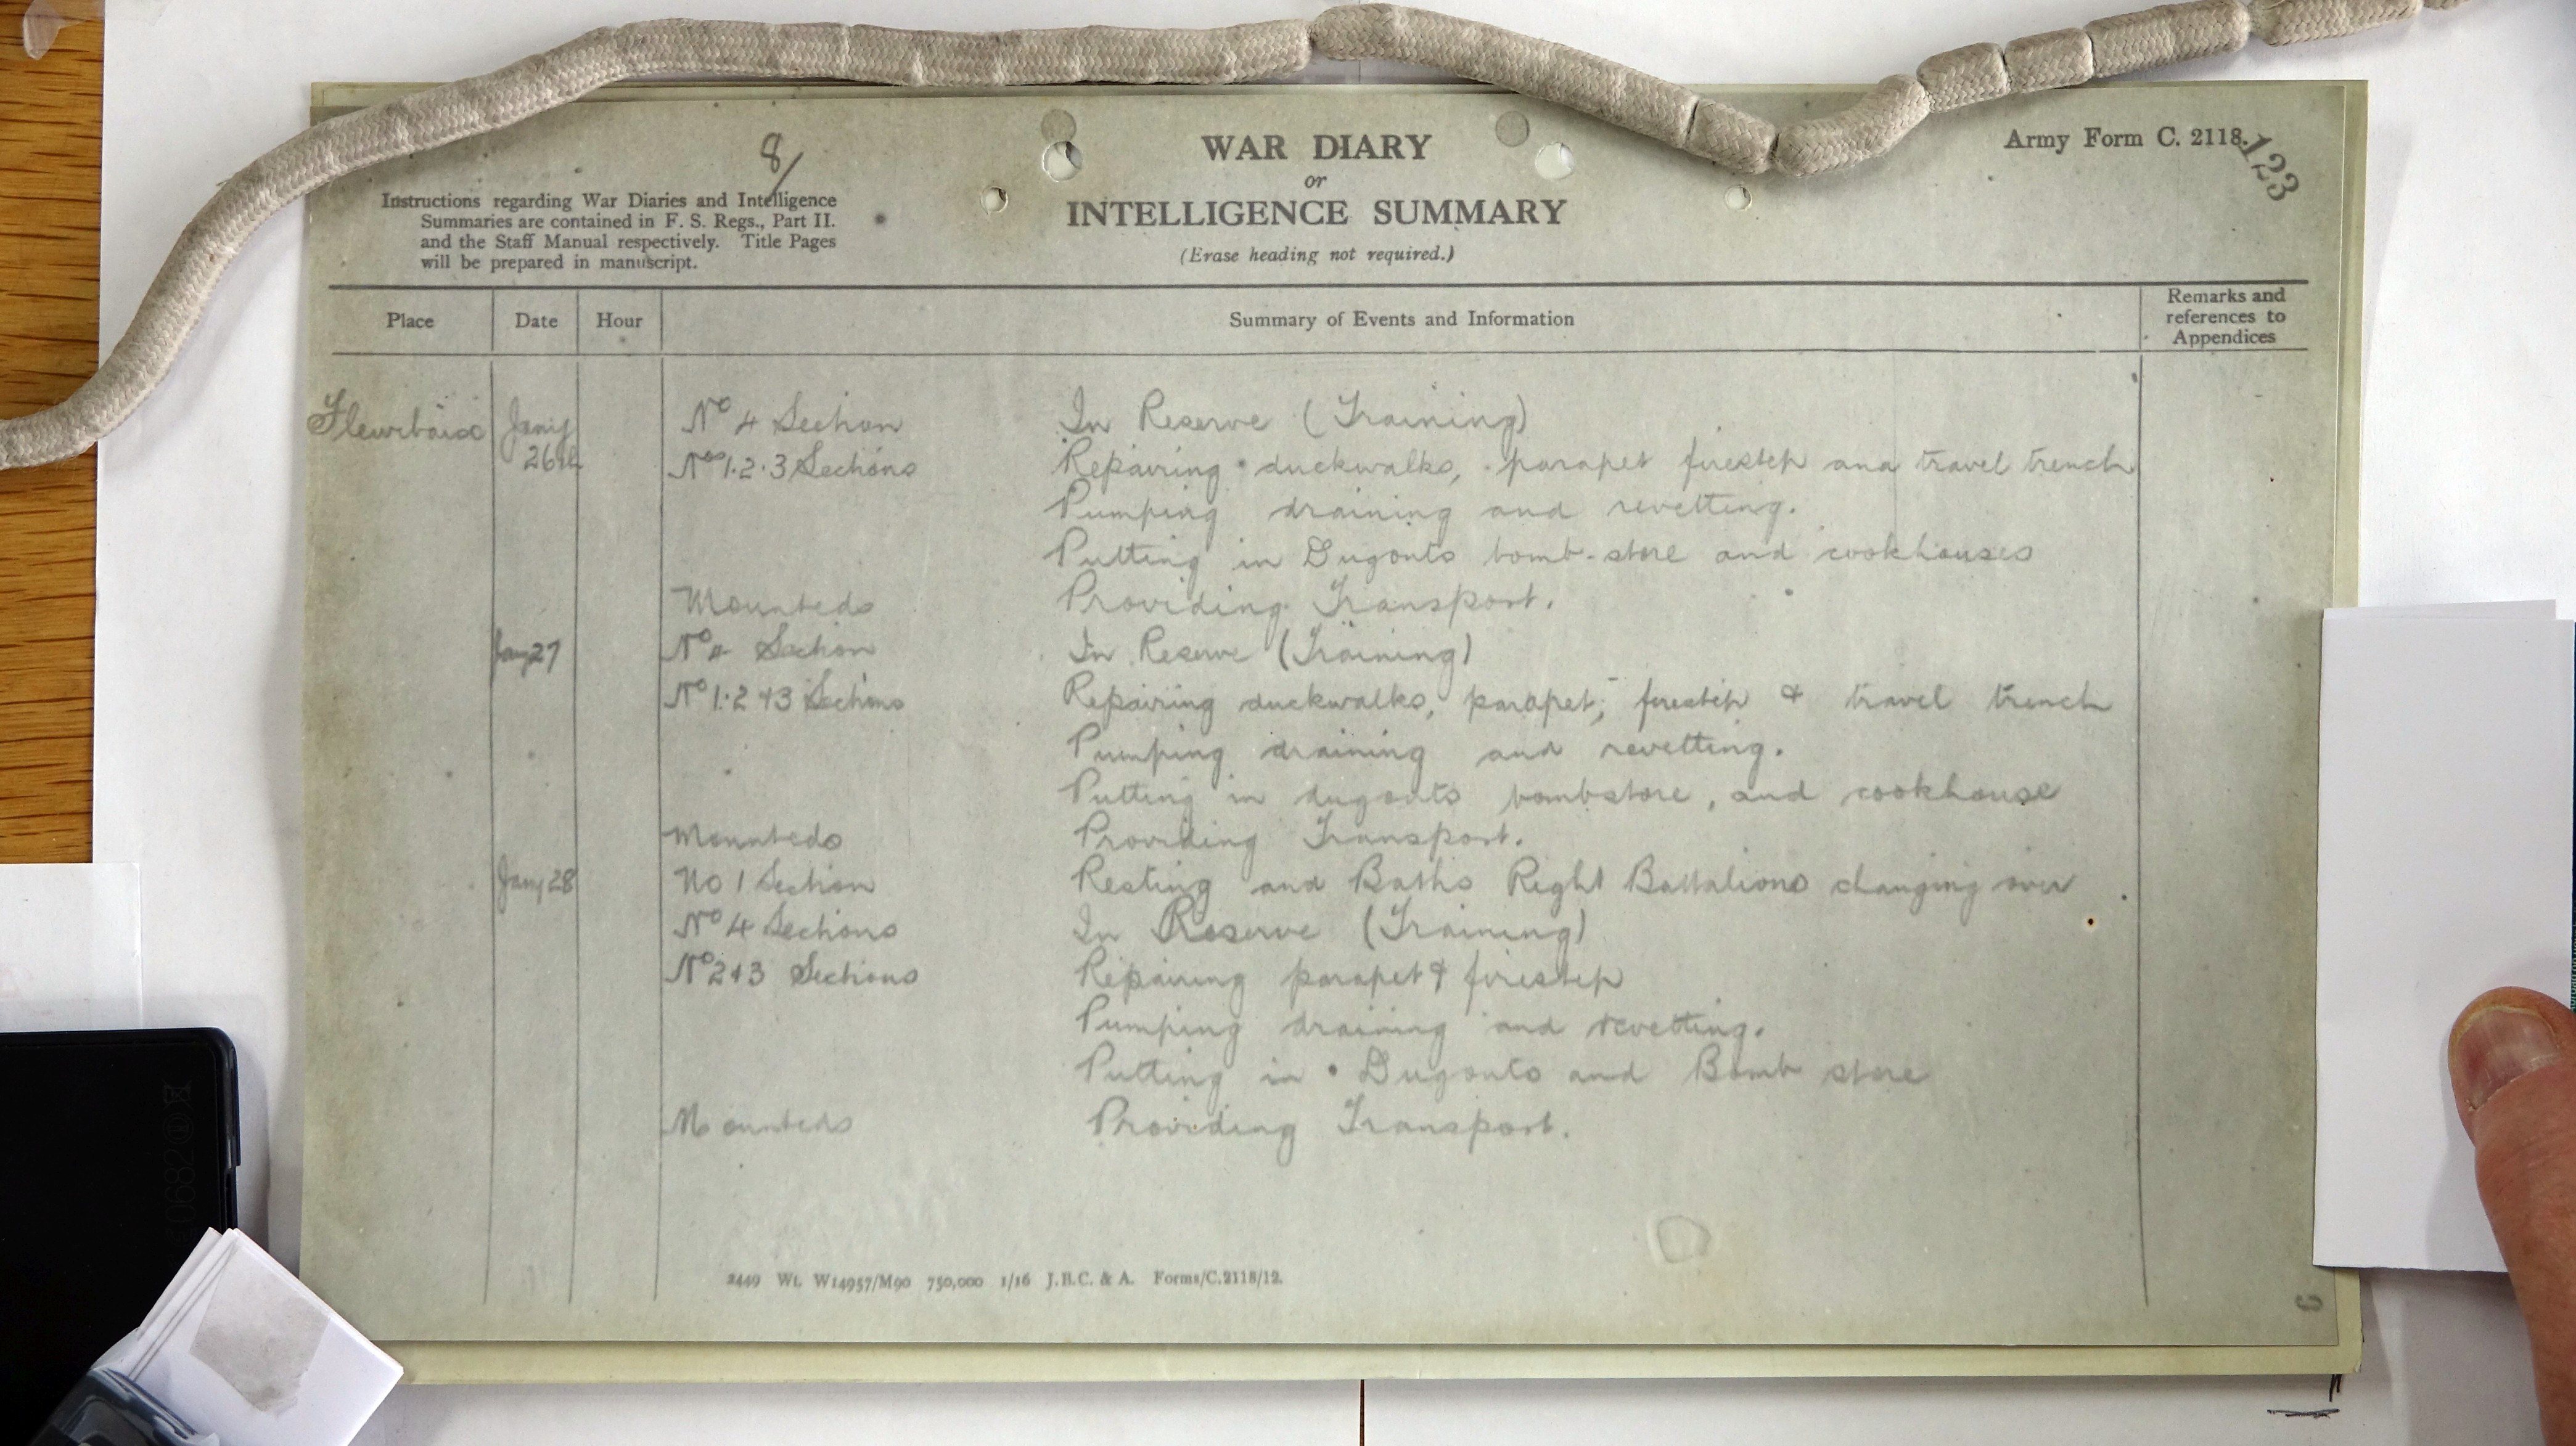 8/
WAR DIARY
or
INTELLIGENCE SUMMARY
(Erase heading not required.)
Army Form C. 2118.
123
Instructions regarding War Diaries and Intelligence
Summaries are contained in F. S. Regs., Part II.
and the Staff Manual respectively. Title Pages
will be prepared in manuscript.
Place Date Hour Summary of Events and Information Remarks and
references to
Appendices
Fleurbaix Jany No 4 Section In Reserve (Training)
26th Nos 1.2.3 Sections Repairing duckwalks, parapet firestep and travel trench
Pumping draining and revetting.
Putting in Dugouts bomb-store and cookhouses
Mounteds Providing Transport.
Jany 27 No 4 Section In Reserve (Training)
No 1.2 +3 Sections Repairing duckwalks, parapet, firestep & travel trench
Pumping draining and revetting.
Putting in dugouts bombstore, and cookhouse
Mounteds Providing Transport.
Jany 28 No 1 Section Resting and Baths Right Battalions changing over
No 4 Sections In Reserve (Training)
No 2+3 Sections Repairing parapet & firestep
Pumping draining and revetting.
Putting in Dugouts and Bomb store
Mounteds Providing Transport.
2449 Wt. W14957/M90 750,000 1/16 J.B.C. & A. Forms/C.2118/12.